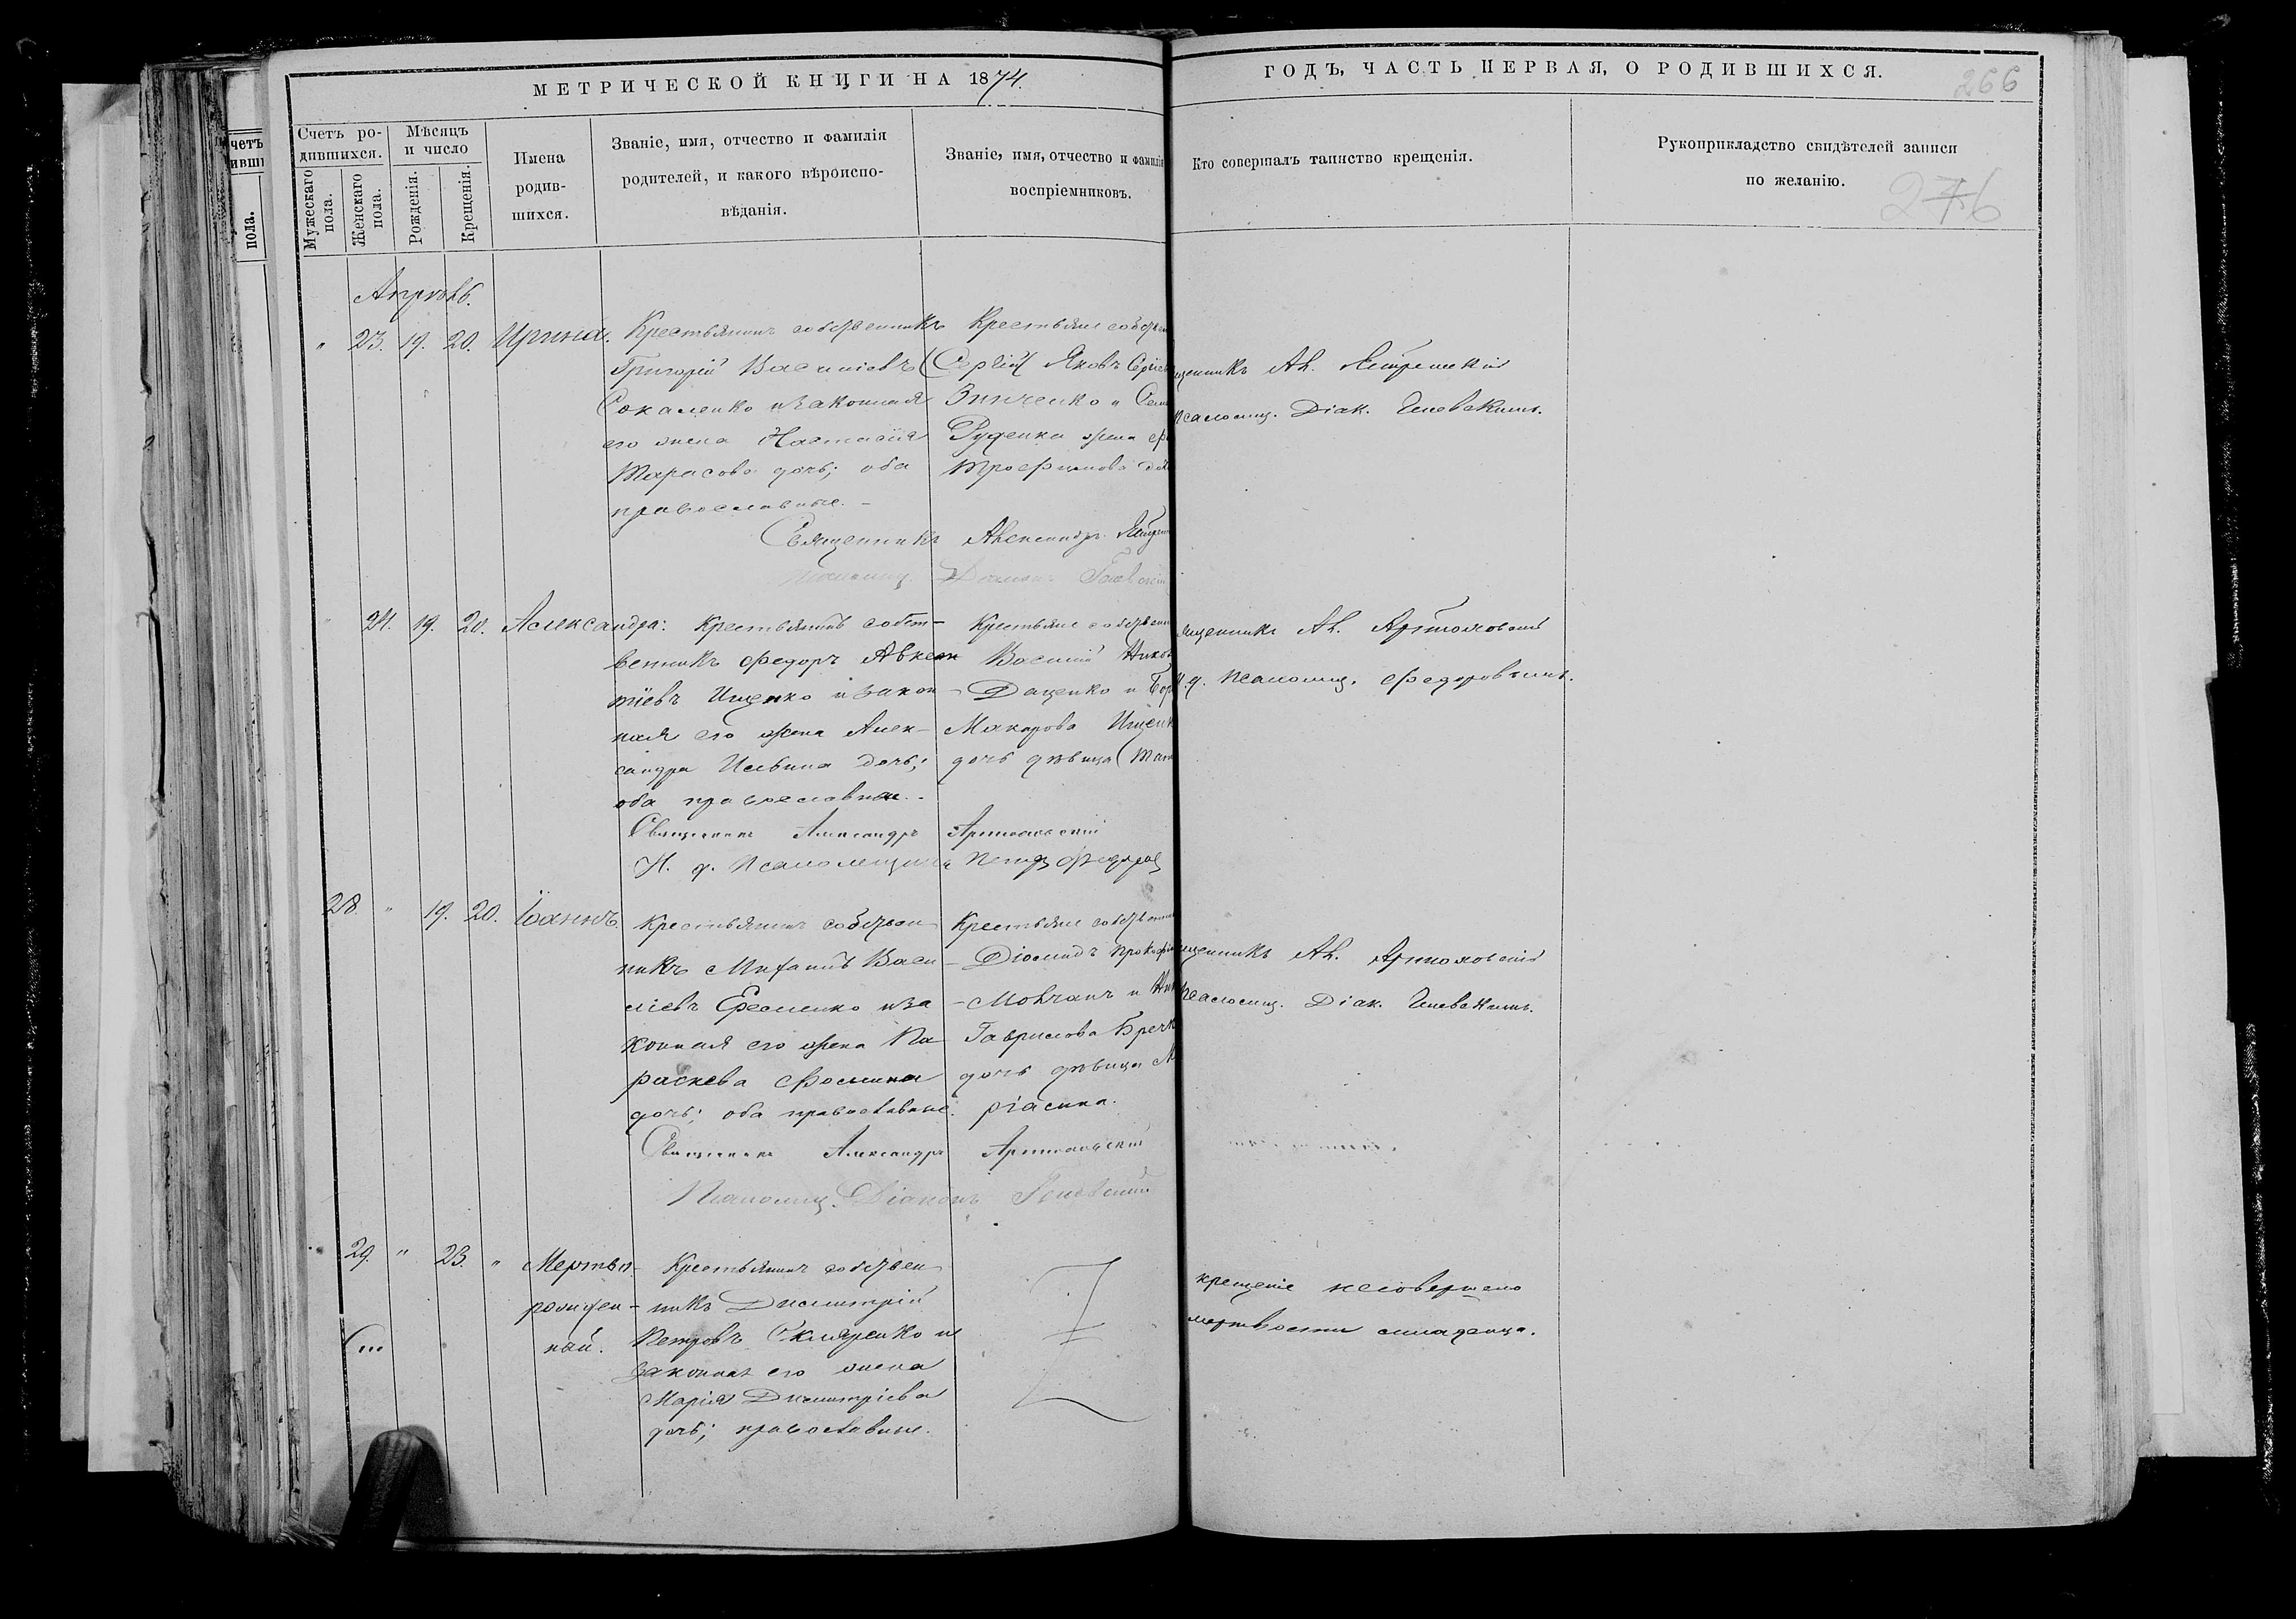 МЕТРИЧЕСКОЙ КНИГИ НА 1874.
ГОДЪ, ЧАСТЬ ПЕРВАЯ, О РОДИВШИХСЯ.
266
Счетъ ро-
дившихся.
Мужескаго
пола.
Женскаго
пола.
Мѣсяцъ
и число
Рожденія.
Крещенія.
Имена
родив-
шихся.
Званіе, имя, отчество и фамилія
родителей, и какого вѣроиспо-
вѣданія.
Званіе, имя, отчество и фамилія
воспріемниковъ.
Кто совершалъ таинство крещенія.
Рукоприкладство свидѣтелей записи
по желанію.
276
Апрѣль.
" 23. 19. 20. Ирина.
Крестьянинъ собственникъ
Григорій Василіевъ
Сокаленко и законная
его жена Настасія
Тарасова дочь; оба
православные. -
Крестьяне собствен
(Сергій) Яковъ Сергіев
Зинченко и
Руденка жена
Трофимова
щенникъ Ал.
псаломщ. Діак.
Священникъ Александръ
" 24. 19. 20. Александра:
Крестьянинъ собст-
венникъ Федоръ Авксен
тіевъ Ищенко и закон-
ная его жена Алек-
сандра Ильина дочь;
оба православные. -
Крестьяне собствен
Василій
Даценко и
Макарова Ищенк
дочь дѣвица
щенникъ Ал. Артюховскій
псаломщ. Федоровымъ.
Священникъ Александръ Артюховскій
И. д. Псаломщика Петръ Федоров
28. " 19. 20. Іоаннъ.
Крестьянинъ собствен
никъ Михаилъ Васи-
ліевъ Еременко и за-
конная его жена Па-
раскева Фомина
дочь; оба православные.
Крестьяне собственн
Діомидъ Прокофі
Мовчанъ и
Гаврилова
дочь дѣвица
щенникъ Ал. Артюховскій
псаломщ. Діак.
Священникъ Александръ Артюховскій
Псаломщ. Діаконъ
29. " 23. " Мертво-
рожден-
ный.
Крестьянинъ собствен
никъ Димитрій
Петровъ Скляренко и
законная его жена
Марія Димитріева
дочь; православные.
крещеніе несовершено
младенца.